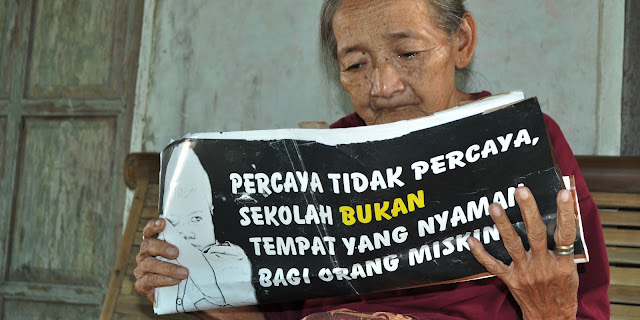 PERCAYA TIDAK PERCAYA,
SEKOLAH BUKAN
TEMPAT YANG NYAMAN
BAGI ORANG MISKIN